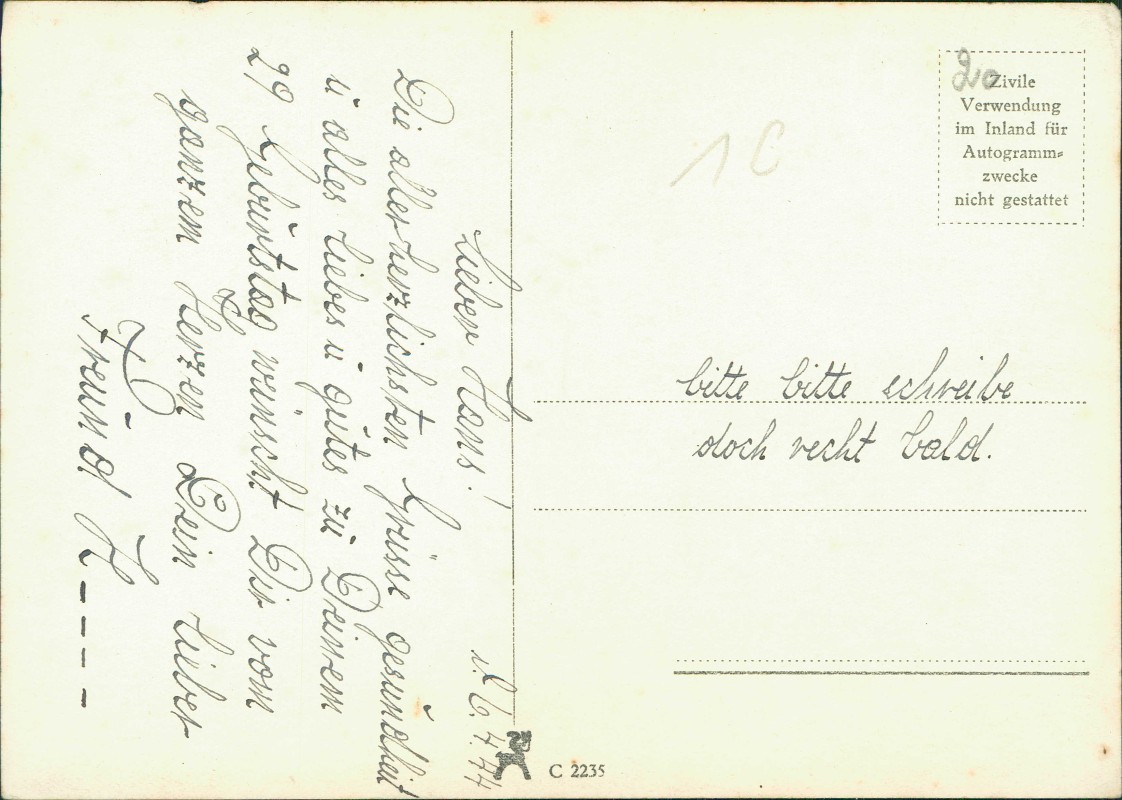 Lieber Hans!
d. 6.4.44
Die allerherzlichsten Grüsse gesundheit
u alles Liebes u gutes zu Deinem
29 Geburtstag wünscht Dir vom
ganzem Herzen Dein Lieber
Freund
bitte bitte schreibe
doch recht bald.
1 C
20
Zivile
Verwendung
im Inland für
Autogramm=
zwecke
nicht gestattet
C 2235